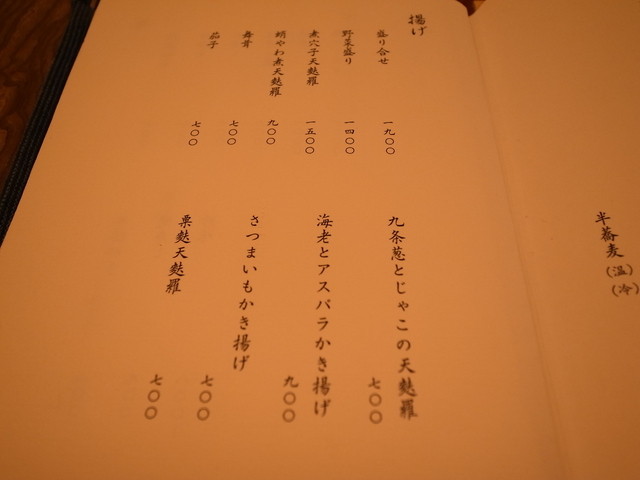 揚げ
盛り合せ 一九〇〇
野菜盛り 一四〇〇
煮穴子天麩羅 一五〇〇
蛸やわ煮天麩羅 九〇〇
舞茸 七〇〇
茄子 七〇〇
九条葱とじゃこの天麩羅 七〇〇
海老とアスパラかき揚げ 九〇〇
さつまいもかき揚げ 七〇〇
栗麩天麩羅 七〇〇
半蕎麦(温)
(冷)